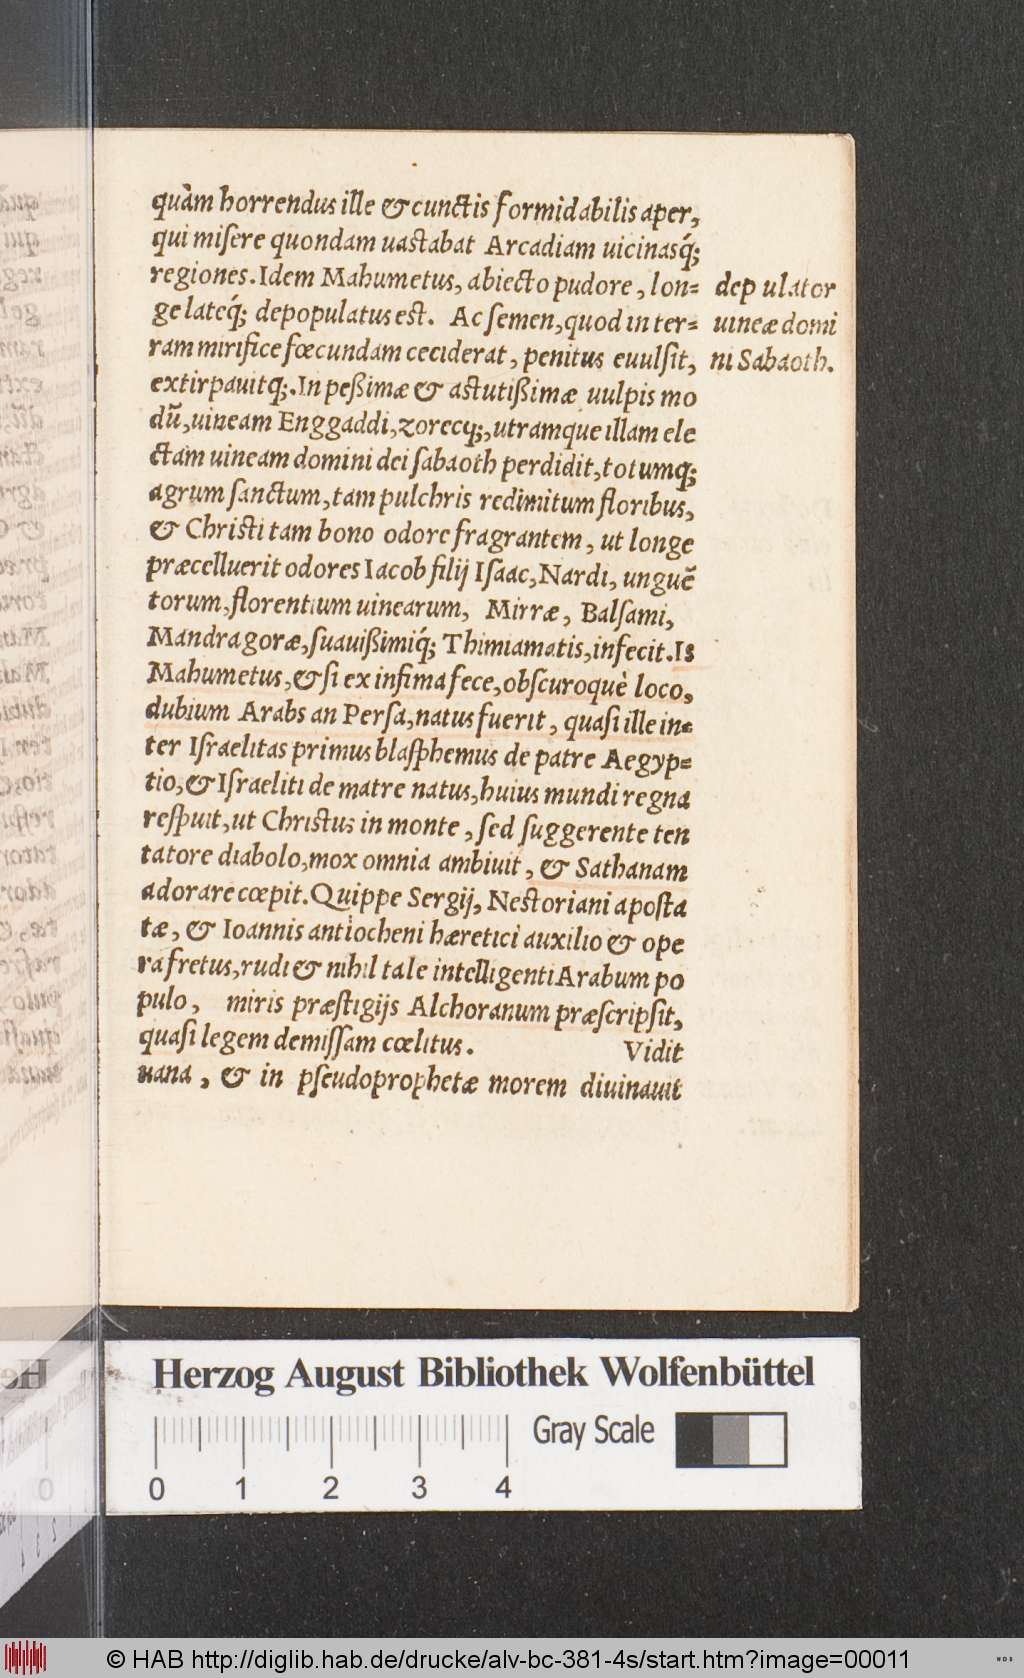 quàm horrendus ille & cunctis formidabilis aper,
qui misere quondam uastabat Arcadiam uicinasq́;
regiones. Idem Mahumetus, abiecto pudore, lon=
ge lateq́; depopulatus est. Ac semen, quod in ter=
ram mirifice fœcundam ceciderat, penitus euulsit,
extirpauitq;. In peßimæ & astutißimæ uulpis mo
dũ, uineam Enggaddi, zorecq;, utramque illam ele
ctam uineam domini dei sabaoth perdidit, totumq;
agrum sanctum, tam pulchris redimitum floribus,
& Christi tam bono odore fragrantem, ut longe
præcelluerit odores Iacob filij Isaac, Nardi, unguẽ
torum, florentium uinearum, Mirræ, Balsami,
Mandragoræ, suauißimiq́; Thimiamatis, infecit. Is
Mahumetus, & si ex infima fece, obscuroquè loco,
dubium Arabs an Persa, natus fuerit, quasi ille in=
ter Israelitas primus blasphemus de patre Aegyp=
tio, & Israeliti de matre natus, huius mundi regna
respuit, ut Christus in monte, sed suggerente ten
tatore diabolo, mox omnia ambiuit, & Sathanam
adorare cœpit. Quippe Sergij, Nestoriani aposta
tæ, & Ioannis antiocheni hæretici auxilio & ope
ra fretus, rudi & nihil tale intelligenti Arabum po
pulo, miris præstigijs Alchoranum præscripsit,
quasi legem demissam cœlitus. Vidit
uana, & in pseudoprophetæ morem diuinauit
depulator
uineæ domi
ni Sabaoth.
Herzog August Bibliothek Wolfenbüttel
Gray Scale
0 1 2 3 4
© HAB http://diglib.hab.de/drucke/alv-bc-381-4s/start.htm?image=00011